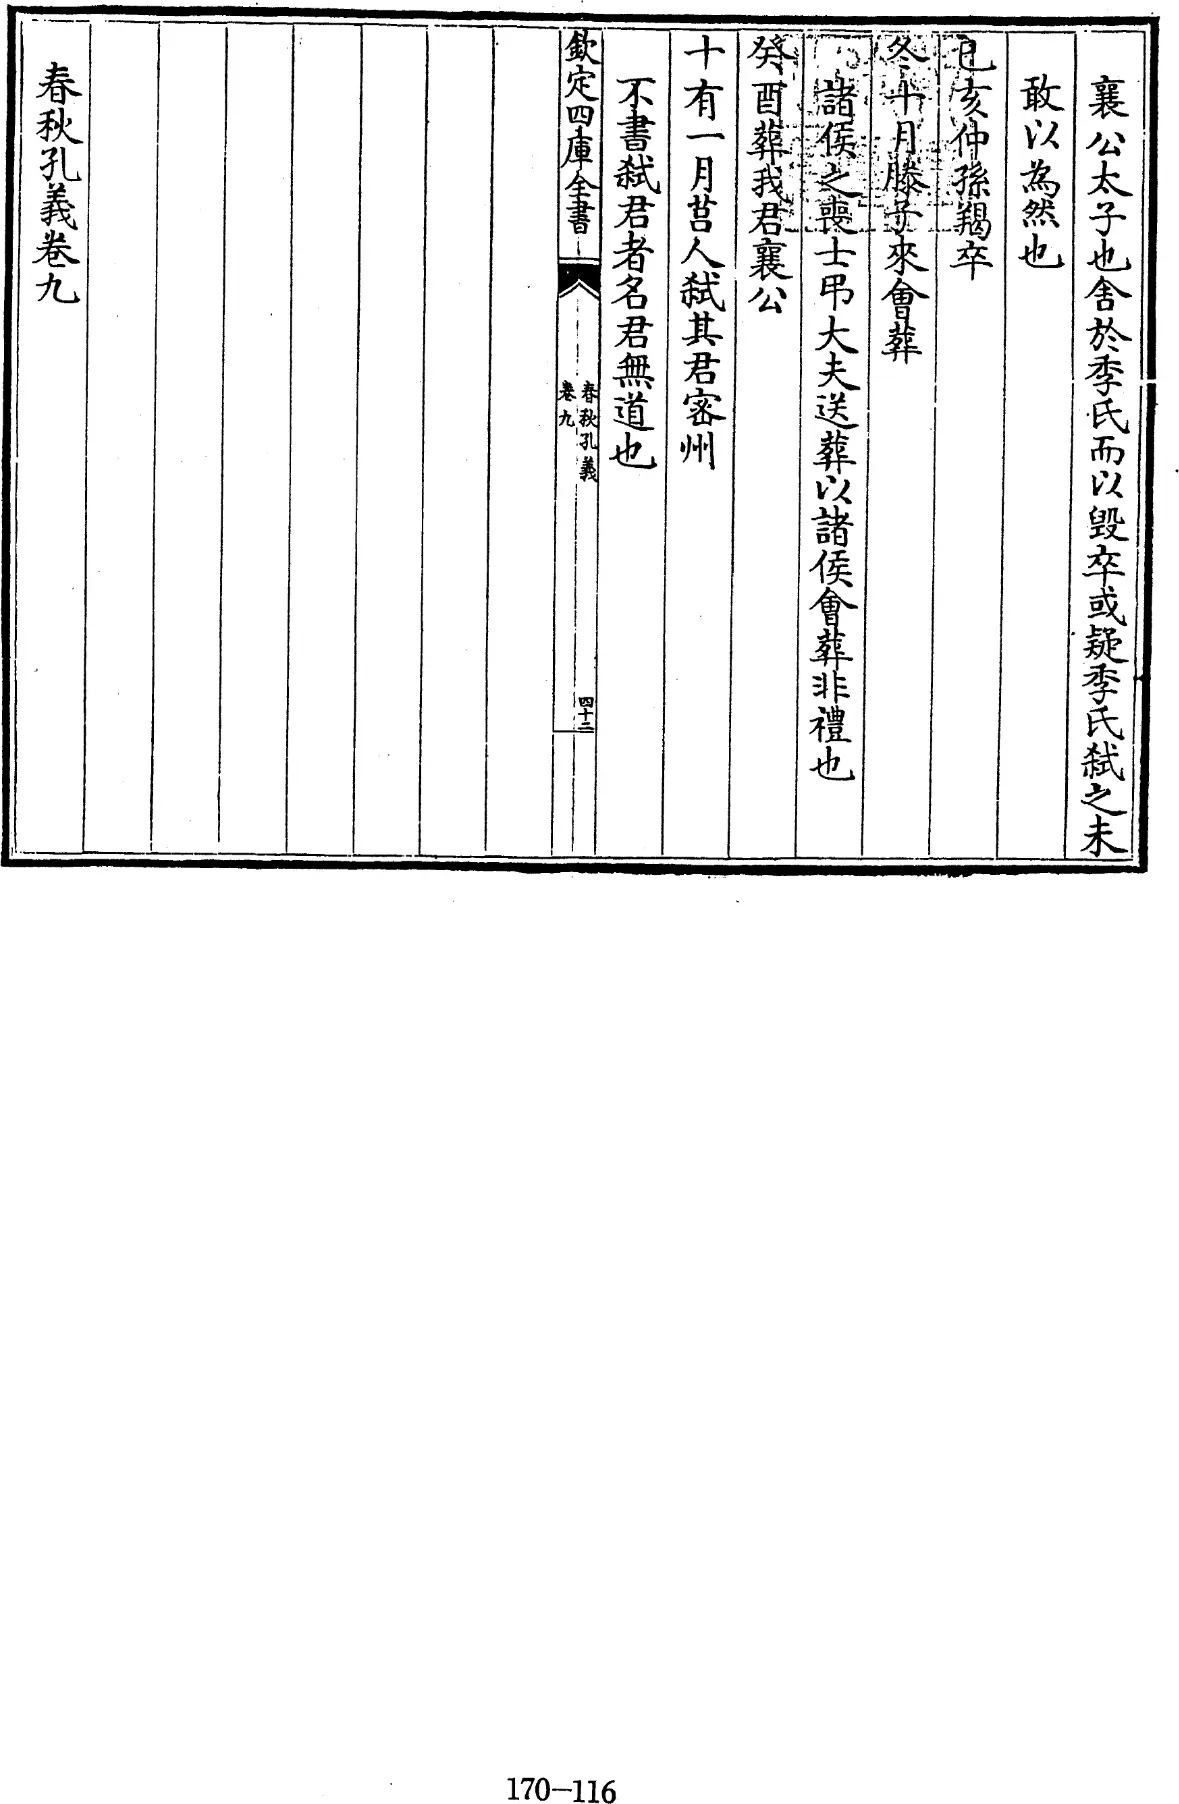 襄公太子也舎於季氏而以毁卒或疑季氏弑之未
敢以為然也
己亥仲孫羯卒
冬十月滕子來會葬
諸侯之喪士弔大夫送葬以諸侯會葬非禮也
癸酉葬我君襄公
十有一月莒人弑其君宻州
不書弑君者名君無道也
欽定四庫全書
春秋孔義
卷九
四十二
春秋孔義卷九
170-116